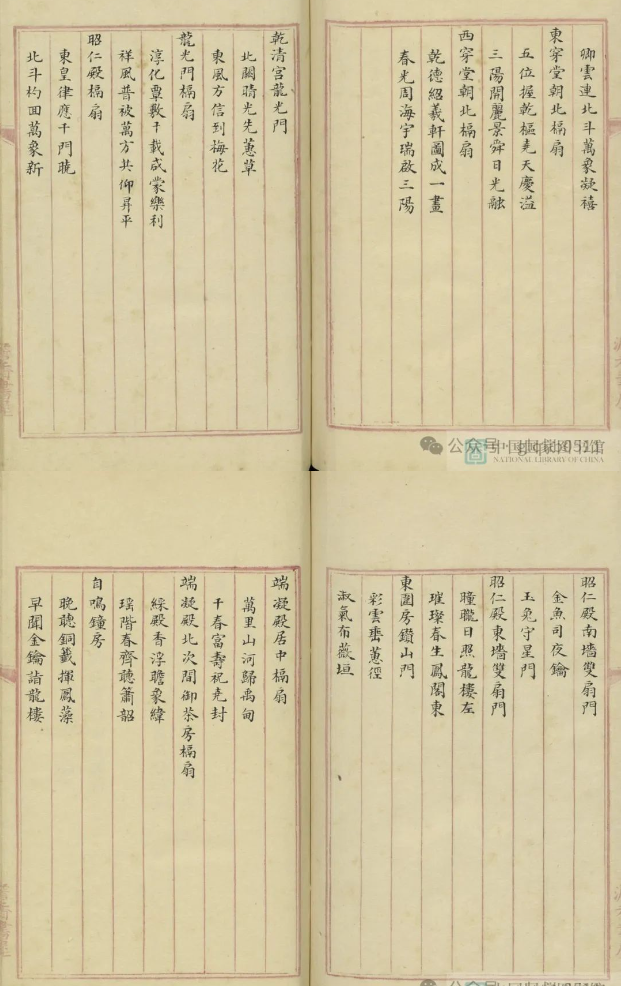 卿雲連北斗萬象凝禧
東穿堂朝北槅扇
五位握乾樞堯天慶溢
三陽開麗景舜日光融
西穿堂朝北槅扇
乾德紹羲軒圖成一畫
春光周海宇瑞啟三陽
乾清宮龍光門
北闕晴光先蕙草
東風方信到梅花
龍光門槅扇
淳化覃敷千載咸蒙樂利
祥風普被萬方共仰昇平
昭仁殿槅扇
東皇律應千門曉
北斗杓回萬象新
公众号
NATIONAL LIBRARY OF CHINA
昭仁殿南墻雙扇門
金魚司夜鑰
玉兔守星門
昭仁殿東墻雙扇門
曈曨日照龍樓左
璀璨春生鳳閣東
東圍房鑽山門
彩雲齊蕙徑
淑氣布薇垣
端凝殿居中槅扇
萬里山河歸禹甸
千春富壽祝堯封
端凝殿北次間御茶房槅扇
綵殿香浮瞻象緯
瑤階春齊聽簫韶
自鳴鐘房
晚聽銅籤揮鳳藻
早開金鑰詣龍樓